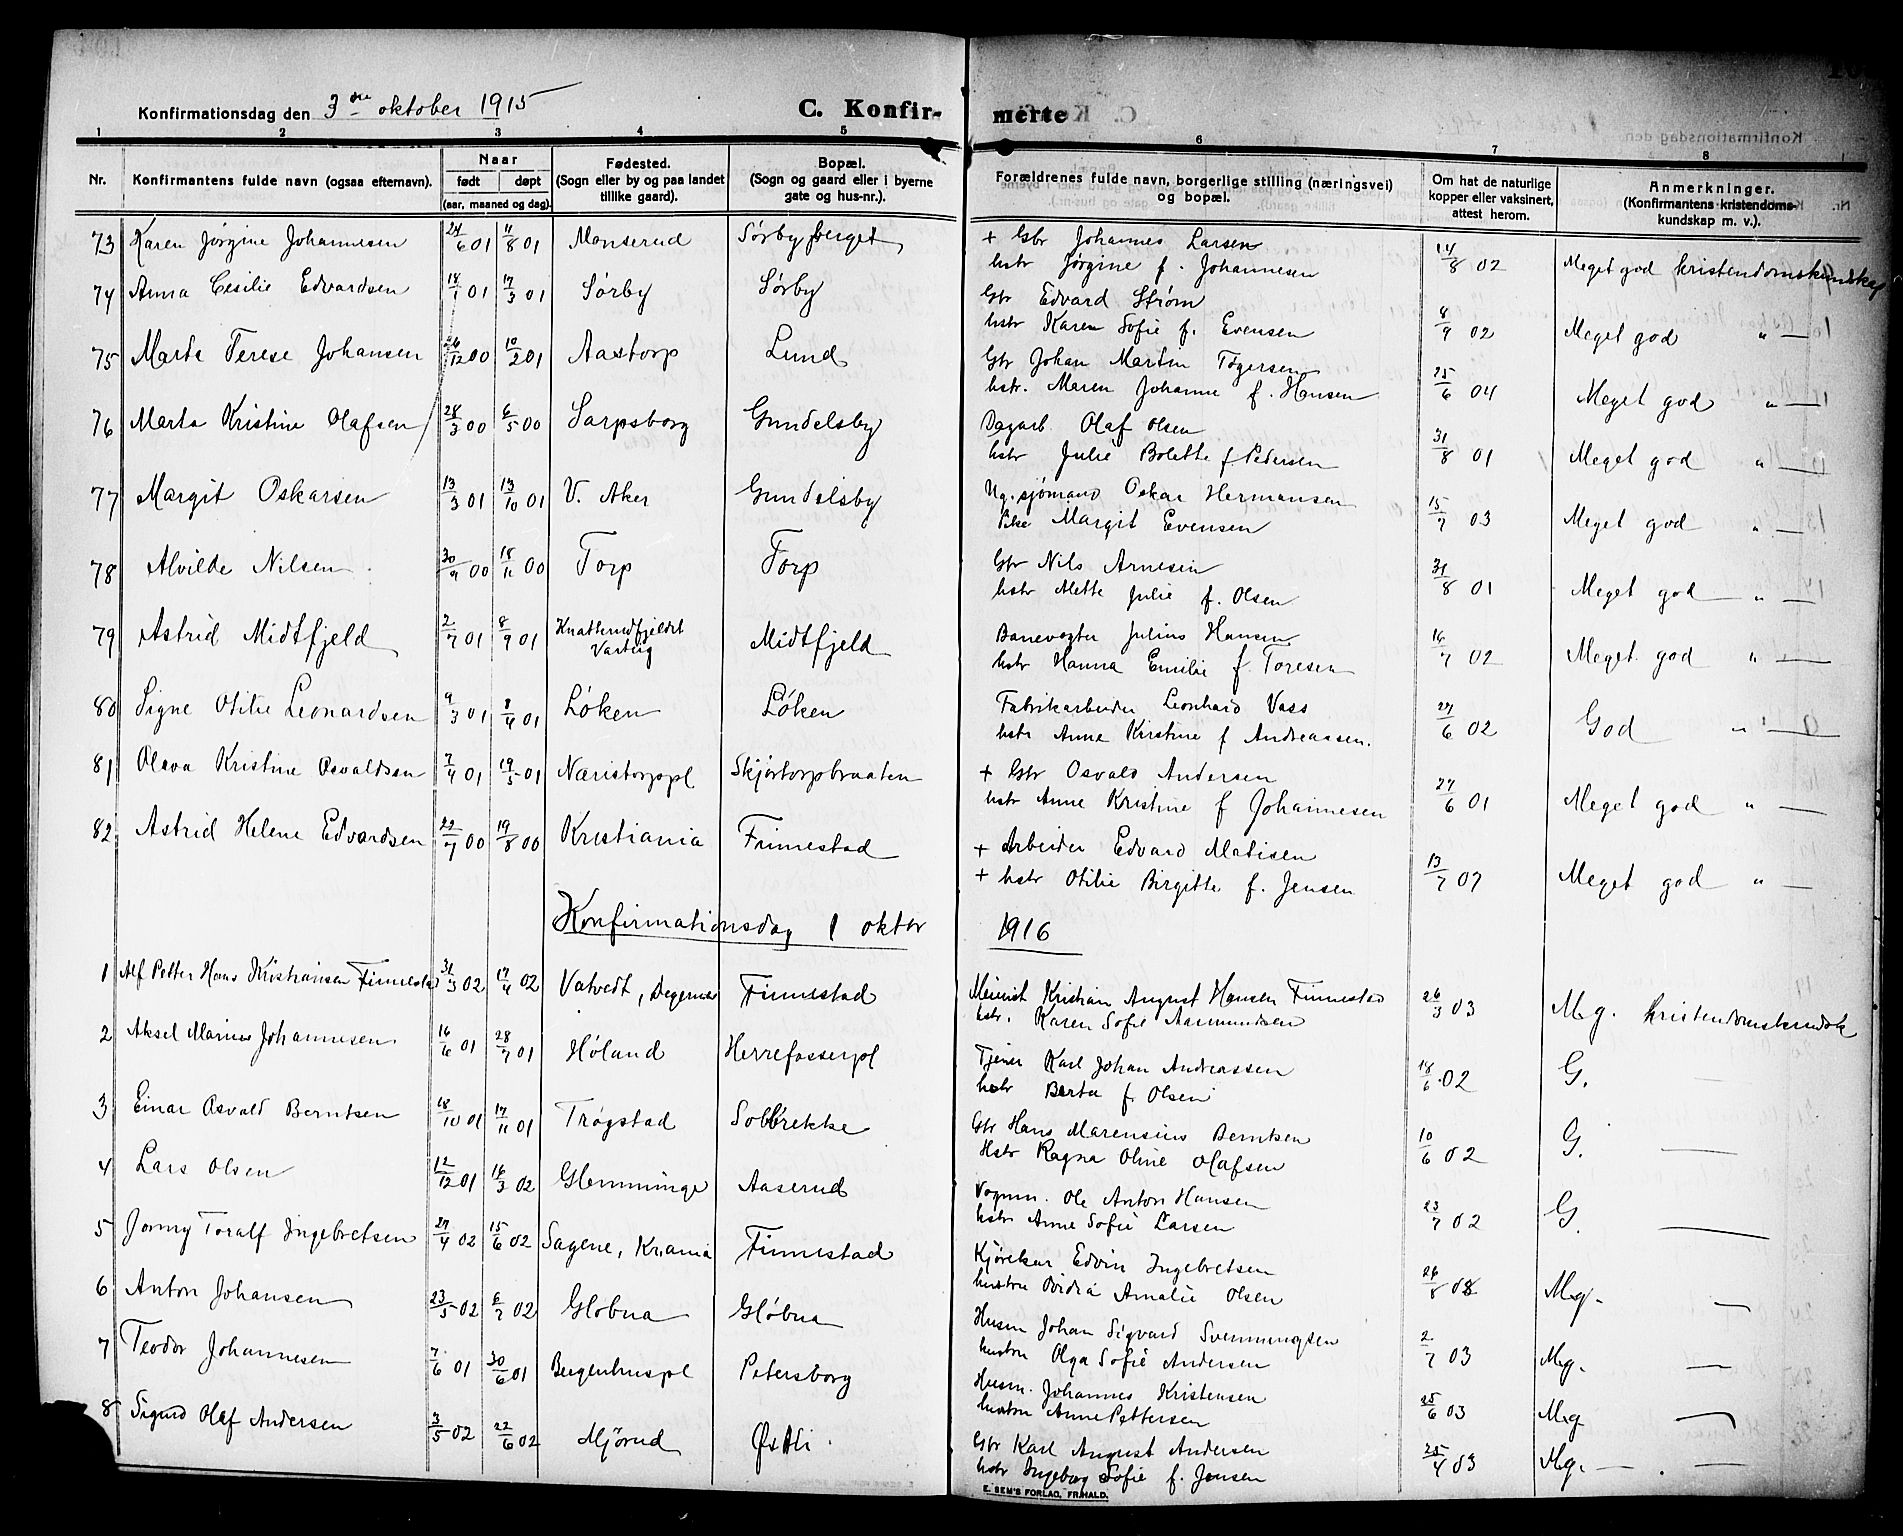 Konfirmationsdag den 3die oktober 1915
C. Konfir-
merte
1 2 3 4 5 6 7 8
Nr. Konfirmantens fulde navn (ogsaa efternavn). Naar født døpt (aar, maaned og dag). Fødested. (Sogn eller by og paa landet tillike gaard). Bopæl. (Sogn og gaard eller i byerne gate og hus-nr.). Forældrenes fulde navn, borgerlige stilling (næringsvei) og bopæl. Om hat de naturlige kopper eller vaksinert, attest herom. Anmerkninger. (Konfirmantens kristendoms-kundskap m. v.).
73 Karen Jørgine Johannesen 24/6 01 11/8 01 Monserud Sørbyberget + Gbr Johannes Larsen
hstr Jørgine f. Johannesen 14/8 02 Meget god kristendomskundskap
74 Anna Cesilie Edvardsen 18/1 01 17/3 01 Sørby Sørby Gbr Edvard Strøm
hstr Karen Sofie f. Evensen 8/9 02 Meget god " —
75 Marta Terese Johansen 26/12 00 10/2 01 Aastorp Lund Gbr Johan Martin Tøgersen
hstr. Maren Johanne f. Hansen 25/6 04 Meget god " —
76 Marta Kristine Olafsen 28/3 00 6/5 00 Sarpsborg Gundelsby Dagarb. Olaf Olsen
hstr Julie Bolette f. Pedersen 31/8 01 Meget god " —
77 Margit Oskarsen 13/3 01 13/10 01 V. Aker Gundelsby Ug. sjømand Oskar Hermansen
Pike Margit Evensen 15/7 03 Meget god " —
78 Alvilde Nilsen 30/9 00 18/11 00 Torp Torp Gbr Nils Arnesen
hstr Mette Julie f. Olsen 31/8 01 Meget god " —
79 Astrid Midtfjeld 2/7 01 8/9 01 Knatterudfjeldet Varteig Midtfjeld Banevogter Julius Hansen
hstr Hanna Emilie f. Toresen 16/7 02 Meget god " —
80 Signe Otilie Leonardsen 9/3 01 8/4 01 Løken Løken Fabrikarbeider Leonhard Vass
hstr Anne Kristine f Andreassen. 27/6 02 God " —
81 Oleva Kristine Osvaldsen 7/4 01 19/5 01 Næristorppl Skjørtorpbraaten + Gbr Osvald Andersen
hstr Anne Kristine f Johannesen 27/6 01 Meget god " —
82 Astrid Helene Edvardsen 22/7 00 19/8 00 Kristiania Finnestad + Arbeider Edvard Matisen
+ hstr Otilie Birgitte f. Jensen 13/7 07 Meget god " —
Konfirmationsdag 1 oktbr 1916
1 Alf Petter Hans Kristiansen Finnestad 31/3 02 17/4 02 Vatvedt, Degernes Finnestad Meierist Kristian August Hansen Finnestad
hstr. Karen Sofie Aasmundsen 26/3 03 M.g. kristendomskundsk
2 Aksel Marius Johannesen 16/6 01 28/7 01 Høland Herrefosserpl Tjener Karl Johan Andreassen
hstr Berta f. Olsen 18/6 02 G. —
3 Einar Osvald Berntsen 18/10 01 17/11 01 Trøgstad Solbrekke Gbr Hans Marensius Berntsen
Hstr Ragna Oline Olafsen 10/6 02 G. —
4 Lars Olsen 12/12 01 16/3 02 Glemminge Aaserud Vognm. Ole Anton Hansen
hstr Anne Sofie Larsen 23/7 02 G. —
5 Jonny Toralf Ingebretsen 27/4 02 15/6 02 Sagene, Kr.ania Finnestad Kjørekar Edvin Ingebretsen
hustru Ovidia Amalie Olsen 26/8 08 M.g. —
6 Anton Johansen 23/5 02 6/7 02 Gløbua Gløbua Husm Johan Sigvard Svenningsen
hustru Olga Sofie Andersen 2/7 03 M.g. —
7 Teodor Johannesen 7/6 01 30/6 01 Bergenhuspl Petersborg Husm. Johannes Kristensen
hustru Anne Pettersen 25/6 03 M.g —
8 Sigurd Olaf Andersen 3/5 02 22/6 02 Mjørud Østli Gbr Karl August Andersen
hstr Ingeborg Sofie f. Jensen 25/4 03 M.g. —
E. SEM'S FORLAG, FR.HALD.